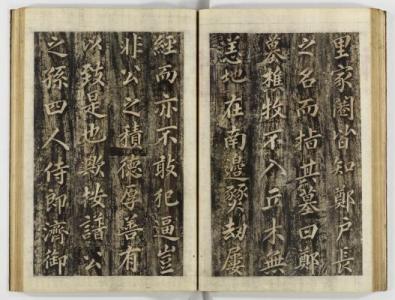 里家皆知鄭戶長
之名而指其墓曰鄭
墓樵牧不入丘木無
恙地在南邊劫屢
經而亦不敢犯逼豈
非公之積德厚善有
以致是也歟按譜公
之孫四人侍郎濟御